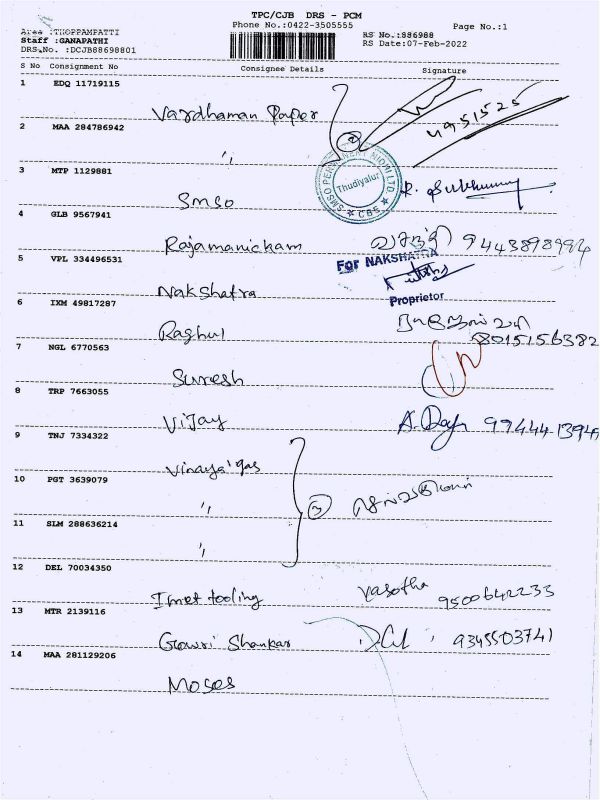 TPC/CJB DRS - PCM
Area :THOPPAMPATTI Phone No.:0422-3505555 Page No.:1
Staff :GANAPATHI RS No.:886988
DRS No. :DCJB88698801 RS Date:07-Feb-2022
S No Consignment No Consignee Details Signature
1 EDQ 11719115
Vardhaman Paper 4951525
2 MAA 284786942
〃 2
SMSO PERMANENT NIDHI LTD
Thudiyalur
★ CBE ★
3 MTP 1129881
SMSO
4 GLB 9567941
Rajamanickam 9443898994
5 VPL 334496531
For NAKSHATRA
Nakshatra
Proprietor
6 IXM 49817287
Raghul
8015156382
7 NGL 6770563
Suresh
8 TRP 7663055
Vijay
9 TNJ 7334322
Vinayaga's
10 PGT 3639079
〃 3
11 SLM 288636214
〃
12 DEL 70034350
Imet tooling Yasotha 9500642233
13 MTR 2139116
Gowri Shankar 9345503741
14 MAA 281129206
Moses